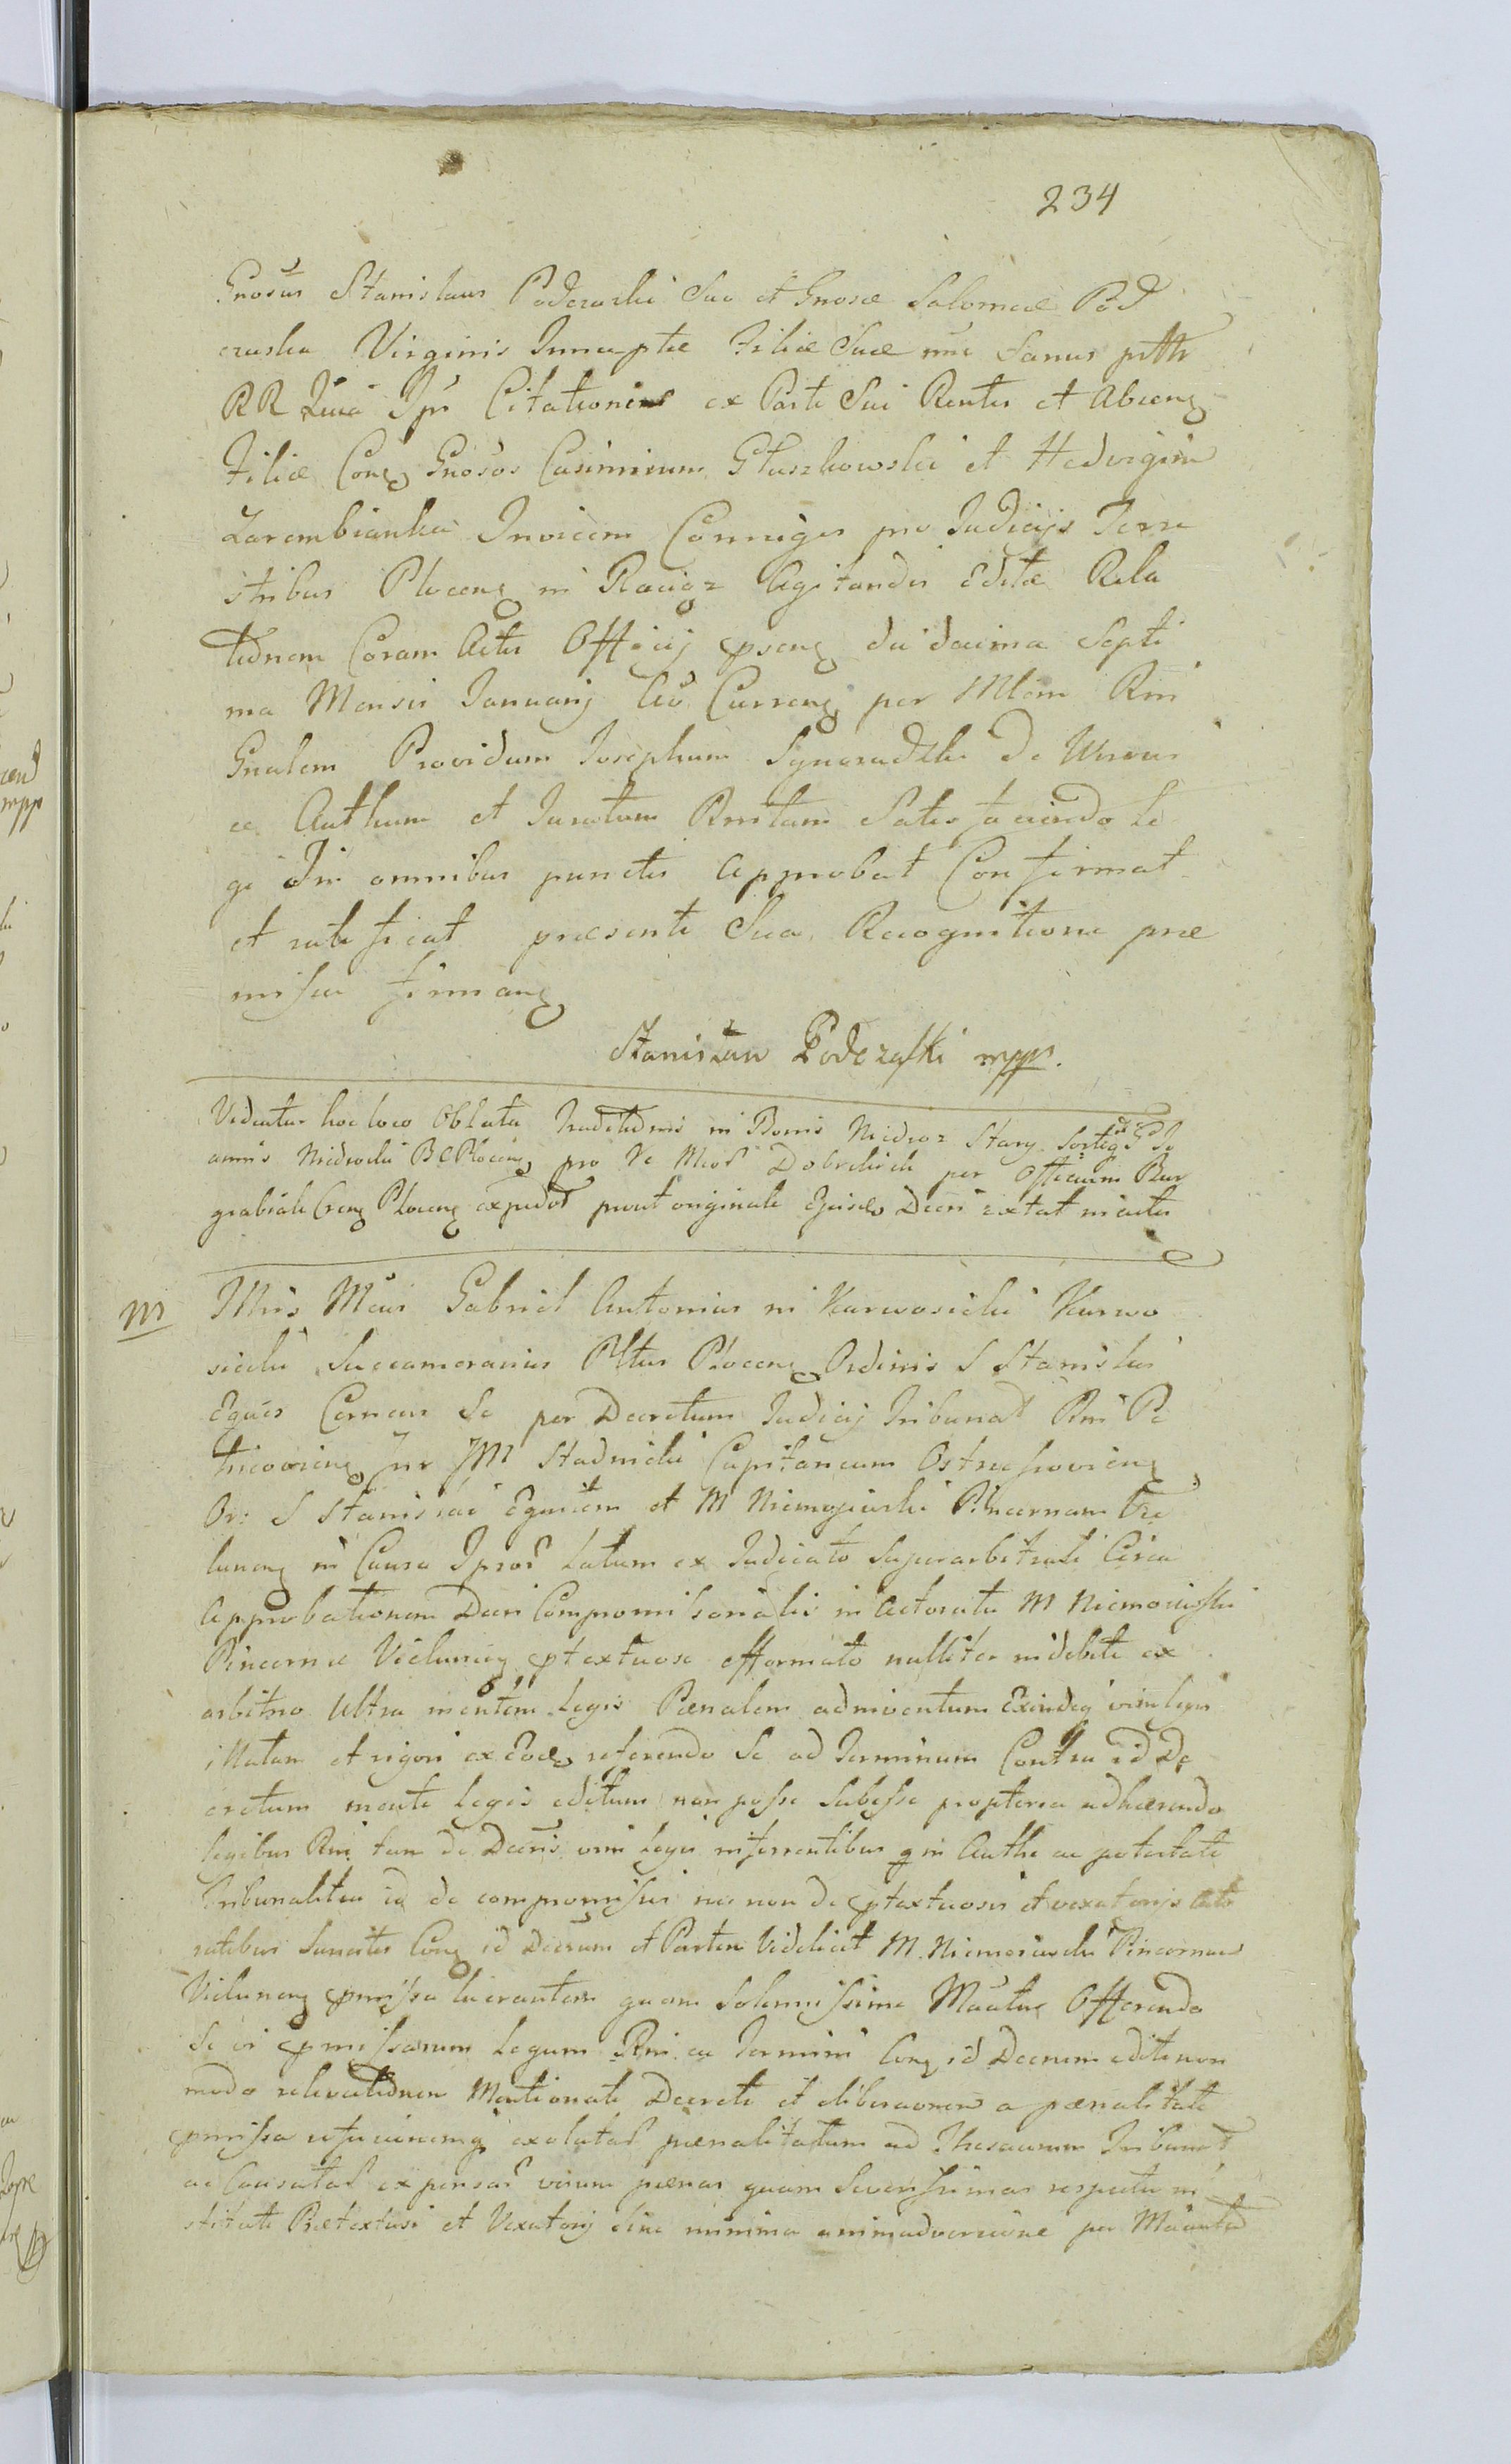 234
Gnosus Stanislaus Podczaski Suo et Gnosae Salomeae Pod
czaska Virginis Innuptae Filiae Suae nne Sanus ptthr
RR Ipi Citationem ex Parte Sui Rentis et Absens
Filiae Cons Gnosos Casimirum Głuszkowski et Hedvigim
Zarembianka Invicem Conniges pro Judicijs Terre
stribus Plocens in Raciąz Agitandis Editae Rela
tionem Coram Actis Officij psens die decima Septi
ma Mensis Januarij Ao Currens per Mlem Rni
Gnalem Providum Josephum Synoradzki De
ac Authum et Juratum Rnitam Satis faciendo Le
gi In omnibus punctis Approbat Confirmat
et ratificat praesenti Sua Recognitione prae
missa firmans
Stanisław Podczaski mpp.
Videatur hoc loco Oblata Traditionis in Bonis Niedroz Stary Sortis GD
annis Niedrocki BC Plocens pro Dobrskich per Officium Bur
grabiale Crens Plocens expedit prout originale Ejusdo Decri extat in actis
M Młis Mcus Gabriel Antonius in Karwosieki Karwo
siecki Succamerarius Pltus Plocens Ordinis S Stanislai
Eques Cernens Se per Decretum Judicij Tribunal Rni Pe
tricoviens Inr JM Stadnicki Capitaneum Ostrzeszoviens
Or: S Stanislai Equitem et M Niemojewski Pincernam Vie
lunens in Causa Ipsor Latum ex Judicato Superarbitrali Circa
Approbationem Decri Compromissorialis in Actoratu M Niemoiewski
Pincernae Vieluniens ptextuose efformato nulliter indebite ex
arbitrio Ultra mentem Legis Paenalem adinventum Exindeq vim legis
illatam et rigori ex Eod referendo Se ad Terminum Contra id De
cretum mente Legis editum non posse Subesse propterea adhaerendo
legibus Rni tam de Decris vim legis inferrentibus q in Authe ac potestate
Tribunalitia id de compromissis nec non de ptextuosis et vexatorijs Acto
ratibus Sancitis Cons id Decrum et Partem Videlicet M. Niemoiewski Pincernam
Vielunens pmissa lucrantem quam Solennissime Mantur Offerendo
Se vi pmissarum Legum Rni ac Termini Cons id Decrum editi non
modo relevationem Mentionati Decreti et eliberaonem a paenalitate
pmissa exolutas paenalitatum ad Thesaurum Tribunal
ac Causatas expensas verum paenas quam Severissimas respectu in
stituti Praetextusi et Vexatorij sine minima animadversione per